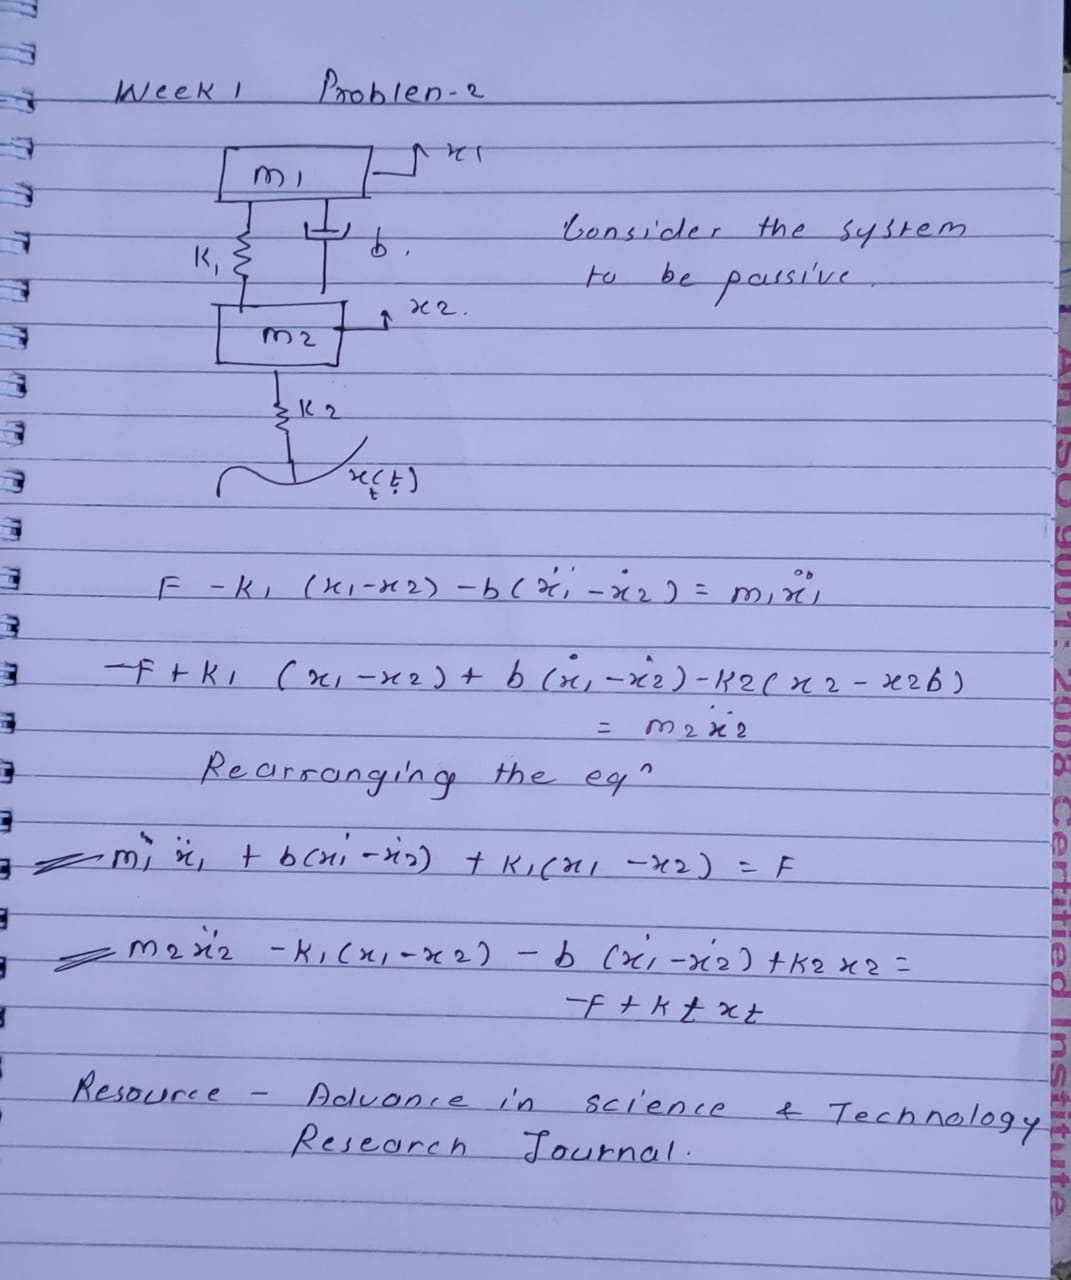 Week 1 Problen-2
m1
x1
K1
b.
Consider the system
to be passive.
m2
x2.
K2
x(t)
t
F - K1 (x1-x2) - b(ẋ1 - ẋ2) = m1ẍ1
-F + K1 (x1-x2) + b(ẋ1-ẋ2) - K2(x2 - x2b)
= m2ẍ2
Rearranging the eqⁿ
m1 ẍ1 + b(ẋ1-ẋ2) + K1(x1 -x2) = F
m2ẍ2 - K1(x1-x2) - b (ẋ1-ẋ2) + K2 x2 =
-F + Kt xt
Resource - Advance in science & Technology
Research Journal.
An ISO 9001: 2008 Certified Institute